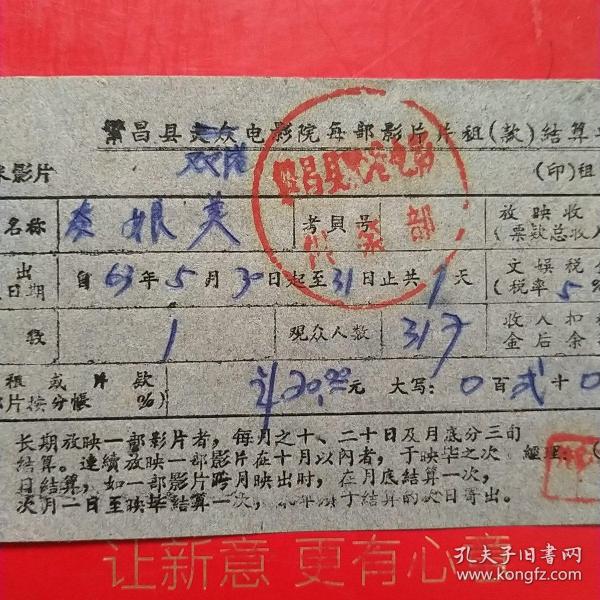 繁昌县大众电影院每部影片片租(款)结算
双港
影片 (印)租
名称 秦娘美 考貝号 放映收
(票款总收入
出
日期 自63年5月30日起至31日止共1天 文娱税
(税率5%
1 观众人数 317 收入扣
金后余
租或片款
片按分帳 %) 20.00元 大写:0百贰十0
长期放映一部影片者,每月之十、二十日及月底分三旬
结算。連續放映一部影片在十月以內者,于映毕之次 經理:
日結算,如一部影片跨月映出时,在月底結算一次,
次月一日至映毕結算一次,于結算的次日寄出。
繁昌县双港电影
代 部
让新意 更有心意
孔夫子旧书网
kongfz.com